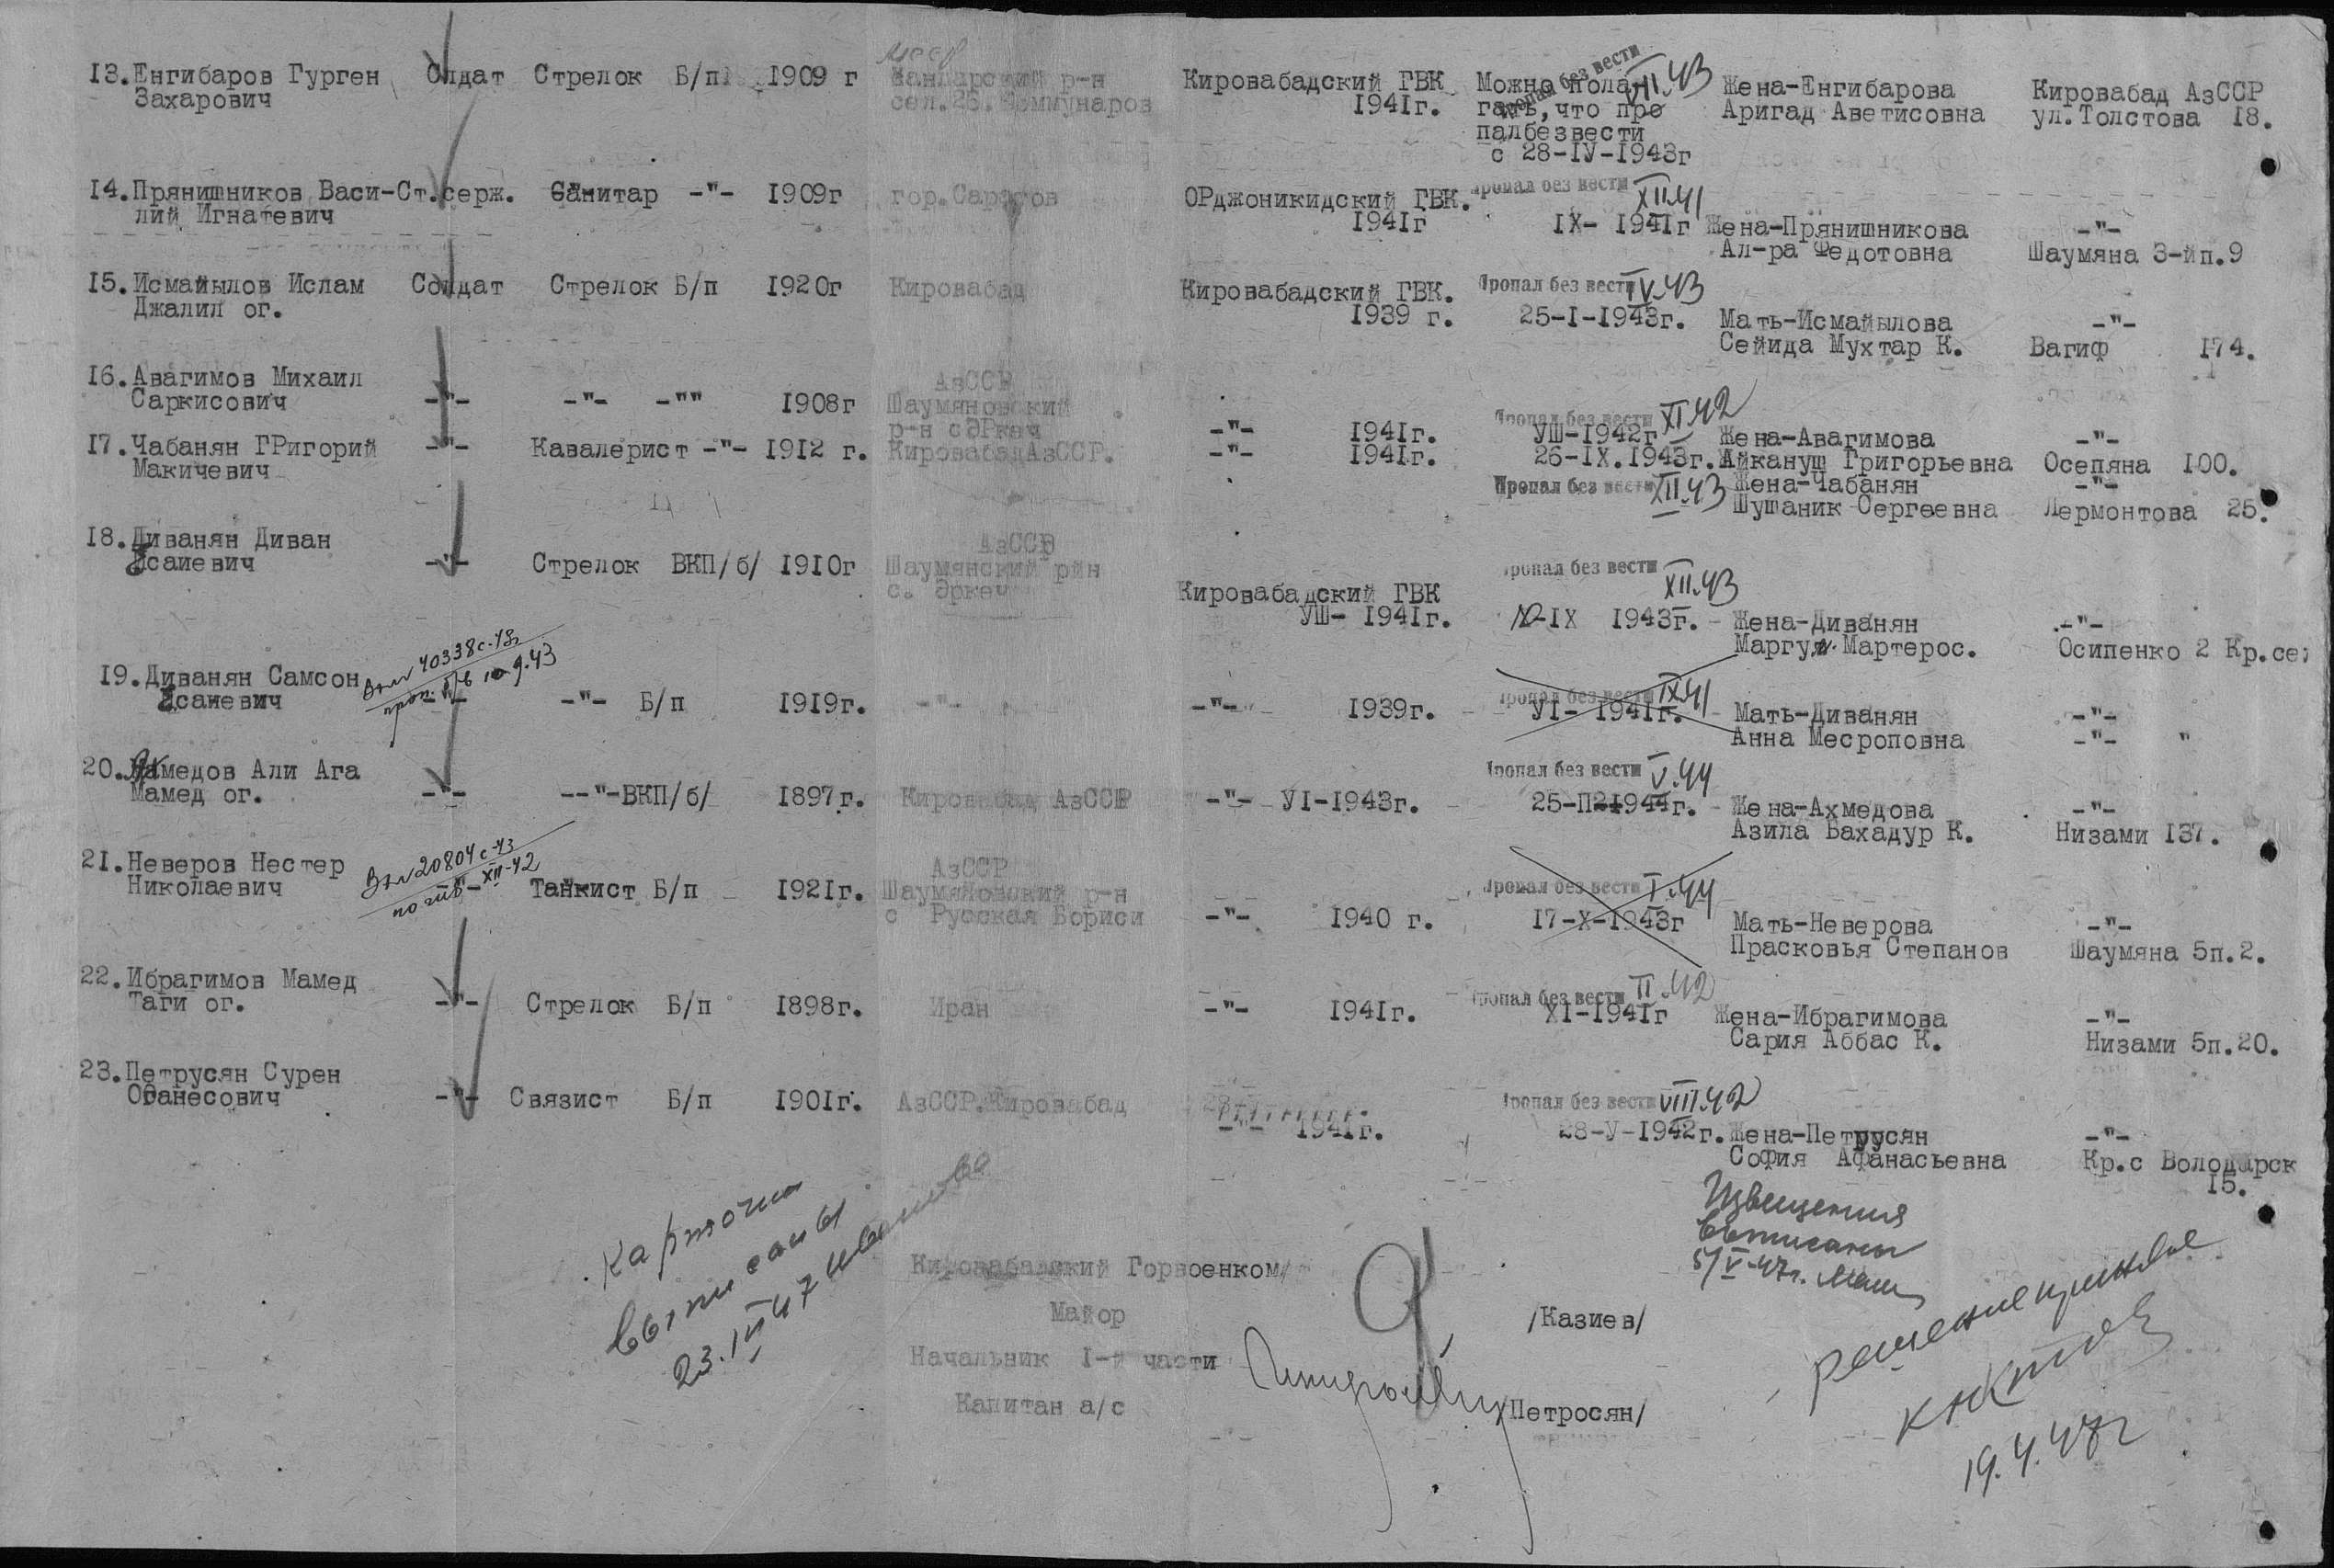 13. Енгибаров Гурген Солдат Стрелок Б/п 1909 г р-н Кировабадский ГВК Можно пола Пропал без вести VII.43 Жена-Енгибарова Кировабад АзССР
Захарович сел.26.Коммунаров 1941г. гать, что про Аригад Аветисовна ул.Толстова 18.
палбезвести
с 28-IУ-1943г
14. Прянишников Васи- Ст.серж. Санитар -"- 1909г гор.Саратов ОРджоникидский ГВК. Пропал без вести XII.41
лий Игнатевич 1941г IX- 1941г Жена-Прянишникова -"-
Ал-ра Федотовна Шаумяна 3-йп.9
15. Исмайылов Ислам Солдат Стрелок Б/п 1920г Кировабад Кировабадский ГВК. Пропал без вести IV.43
Джалил ог. 1939 г. 25-I-1943г. Мать-Исмайылова -"-
Сейида Мухтар К. Вагиф 174.
16. Авагимов Михаил АзССР
Саркисович -"- -"- -"" 1908г Шаумяновский Пропал без вести XI.42
р-н с Эркеч -"- 1941г. УШ-1942г Жена-Авагимова -"-
17. Чабанян ГРигорий -"- Кавалерист -"- 1912 г. КировабадАзССР. -"- 1941г. 26-IХ.1943г. Айкануш Григорьевна Осепяна 100.
Макичевич Пропал без вести XII.43 Жена-Чабанян -"-
Шушаник Сергеевна Лермонтова 25.
18. Диванян Диван АзССР
Исаиевич -"- Стрелок ВКП/б/ 1910г Шаумянский рйн Пропал без вести XII.43
с. Эркеч Кировабадский ГВК
УШ- 1941г. IХ 1943г. Жена-Диванян -"-
Маргул. Мартерос. Осипенко 2 Кр.се
Вх№ 40338с-43г
проп. б/в 10.9.43
19. Диванян Самсон Пропал без вести IX.41
Исаиевич -"- -"- Б/п 1919г. -"- -"- 1939г. УI- 1941г. Мать-Диванян -"-
Анна Месроповна -"- "
20. Ахмедов Али Ага Пропал без вести V.44
Мамед ог. -"- --"-ВКП/б/ 1897г. Кировабад АзССР -"- УI-1943г. 25-П-1944г. Жена-Ахмедова -"-
Азила Бахадур К. Низами 137.
Вх№20804с-43
погиб XII-42
21. Неверов Нестер АзССР
Николаевич -"- Танкист Б/п 1921г. Шаумяновский р-н Пропал без вести I.44
с Русская Бориси -"- 1940 г. 17-Х-1943г Мать-Неверова -"-
Прасковья Степанов Шаумяна 5п.2.
22. Ибрагимов Мамед Пропал без вести II.42
Таги ог. -"- Стрелок Б/п 1898г. Иран -"- 1941г. ХI-1941г Жена-Ибрагимова -"-
Сария Аббас К. Низами 5п.20.
23. Петрусян Сурен
Оганесович -"- Связист Б/п 1901г. АзССР.Кировабад Пропал без вести VIII.42
-"- 1941г. 28-У-1942г. Жена-Петрусян -"-
София Афанасьевна Кр.с Володарск
15.
Карточки
выписаны
23.IV 47 Иванова
Извещения
выписаны
5/V-47г.
Кировабадский Горвоенком/
Майор /Казиев/
Начальник 1-й части
Капитан а/с /Петросян/
19.4.47г